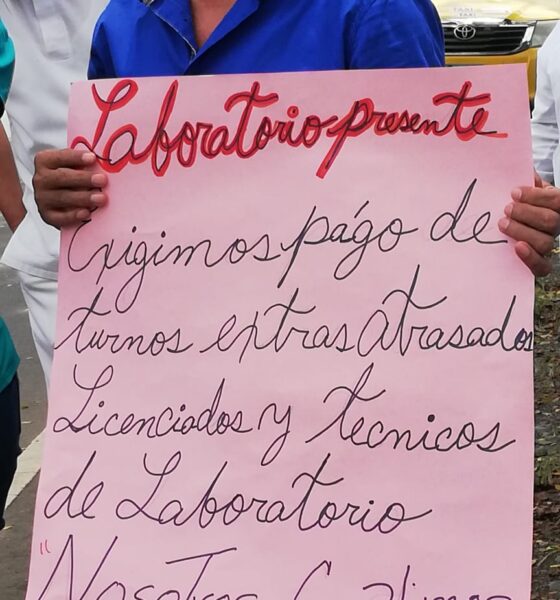 Laboratorio presente
Exigimos págo de
turnos extras atrasados
Licenciados y tecnicos
de Laboratorio
"Nosotros